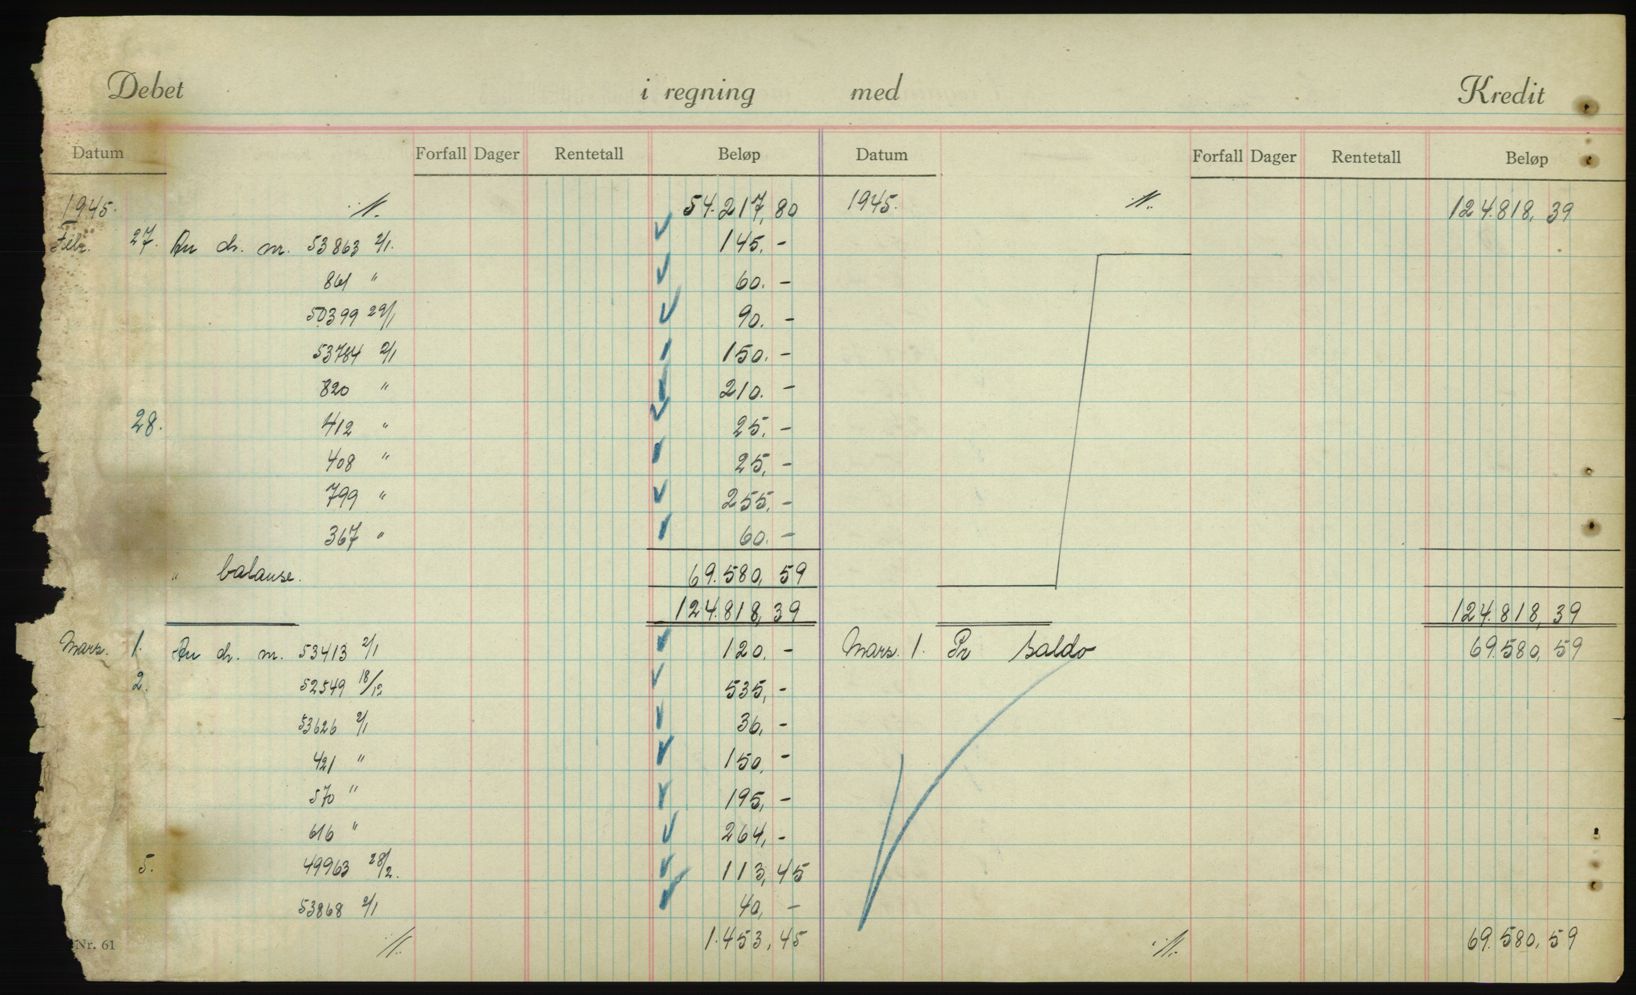 Debet i regning med Kredit
Datum Forfall Dager Rentetall Beløp Datum Forfall Dager Rentetall Beløp
1945. ·/. 54.217,80 1945. ·/. 124.818,39
Febr. 27. An ch. nr. 53863 2/1. 145.-
861 " 60.-
50399 29/1 90.-
53784 2/1 150.-
820 " 210.-
28. 412 " 25.-
408 " 25,-
799 " 255,-
367 " 60.-
" balanse. 69.580,59
124.818,39 124.818,39
Mars. 1. An ch. nr. 53413 2/1 120.- Mars. 1. Pr saldo 69.580,59
2. 52549 18/12 535,-
53626 2/1 36,-
421 " 150,-
570 " 195,-
616 " 264,-
5. 49963 28/2. 113,45
53868 2/1 40,-
Nr. 61 ·/. 1.453,45 ·/. 69.580,59